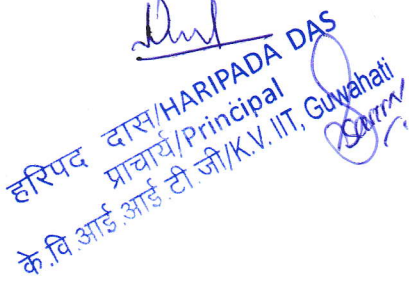 हरिपद दास/HARIPADA DAS
प्राचार्य/Principal
के.वि.आई.आई.टी.जी/K.V. IIT, Guwahati